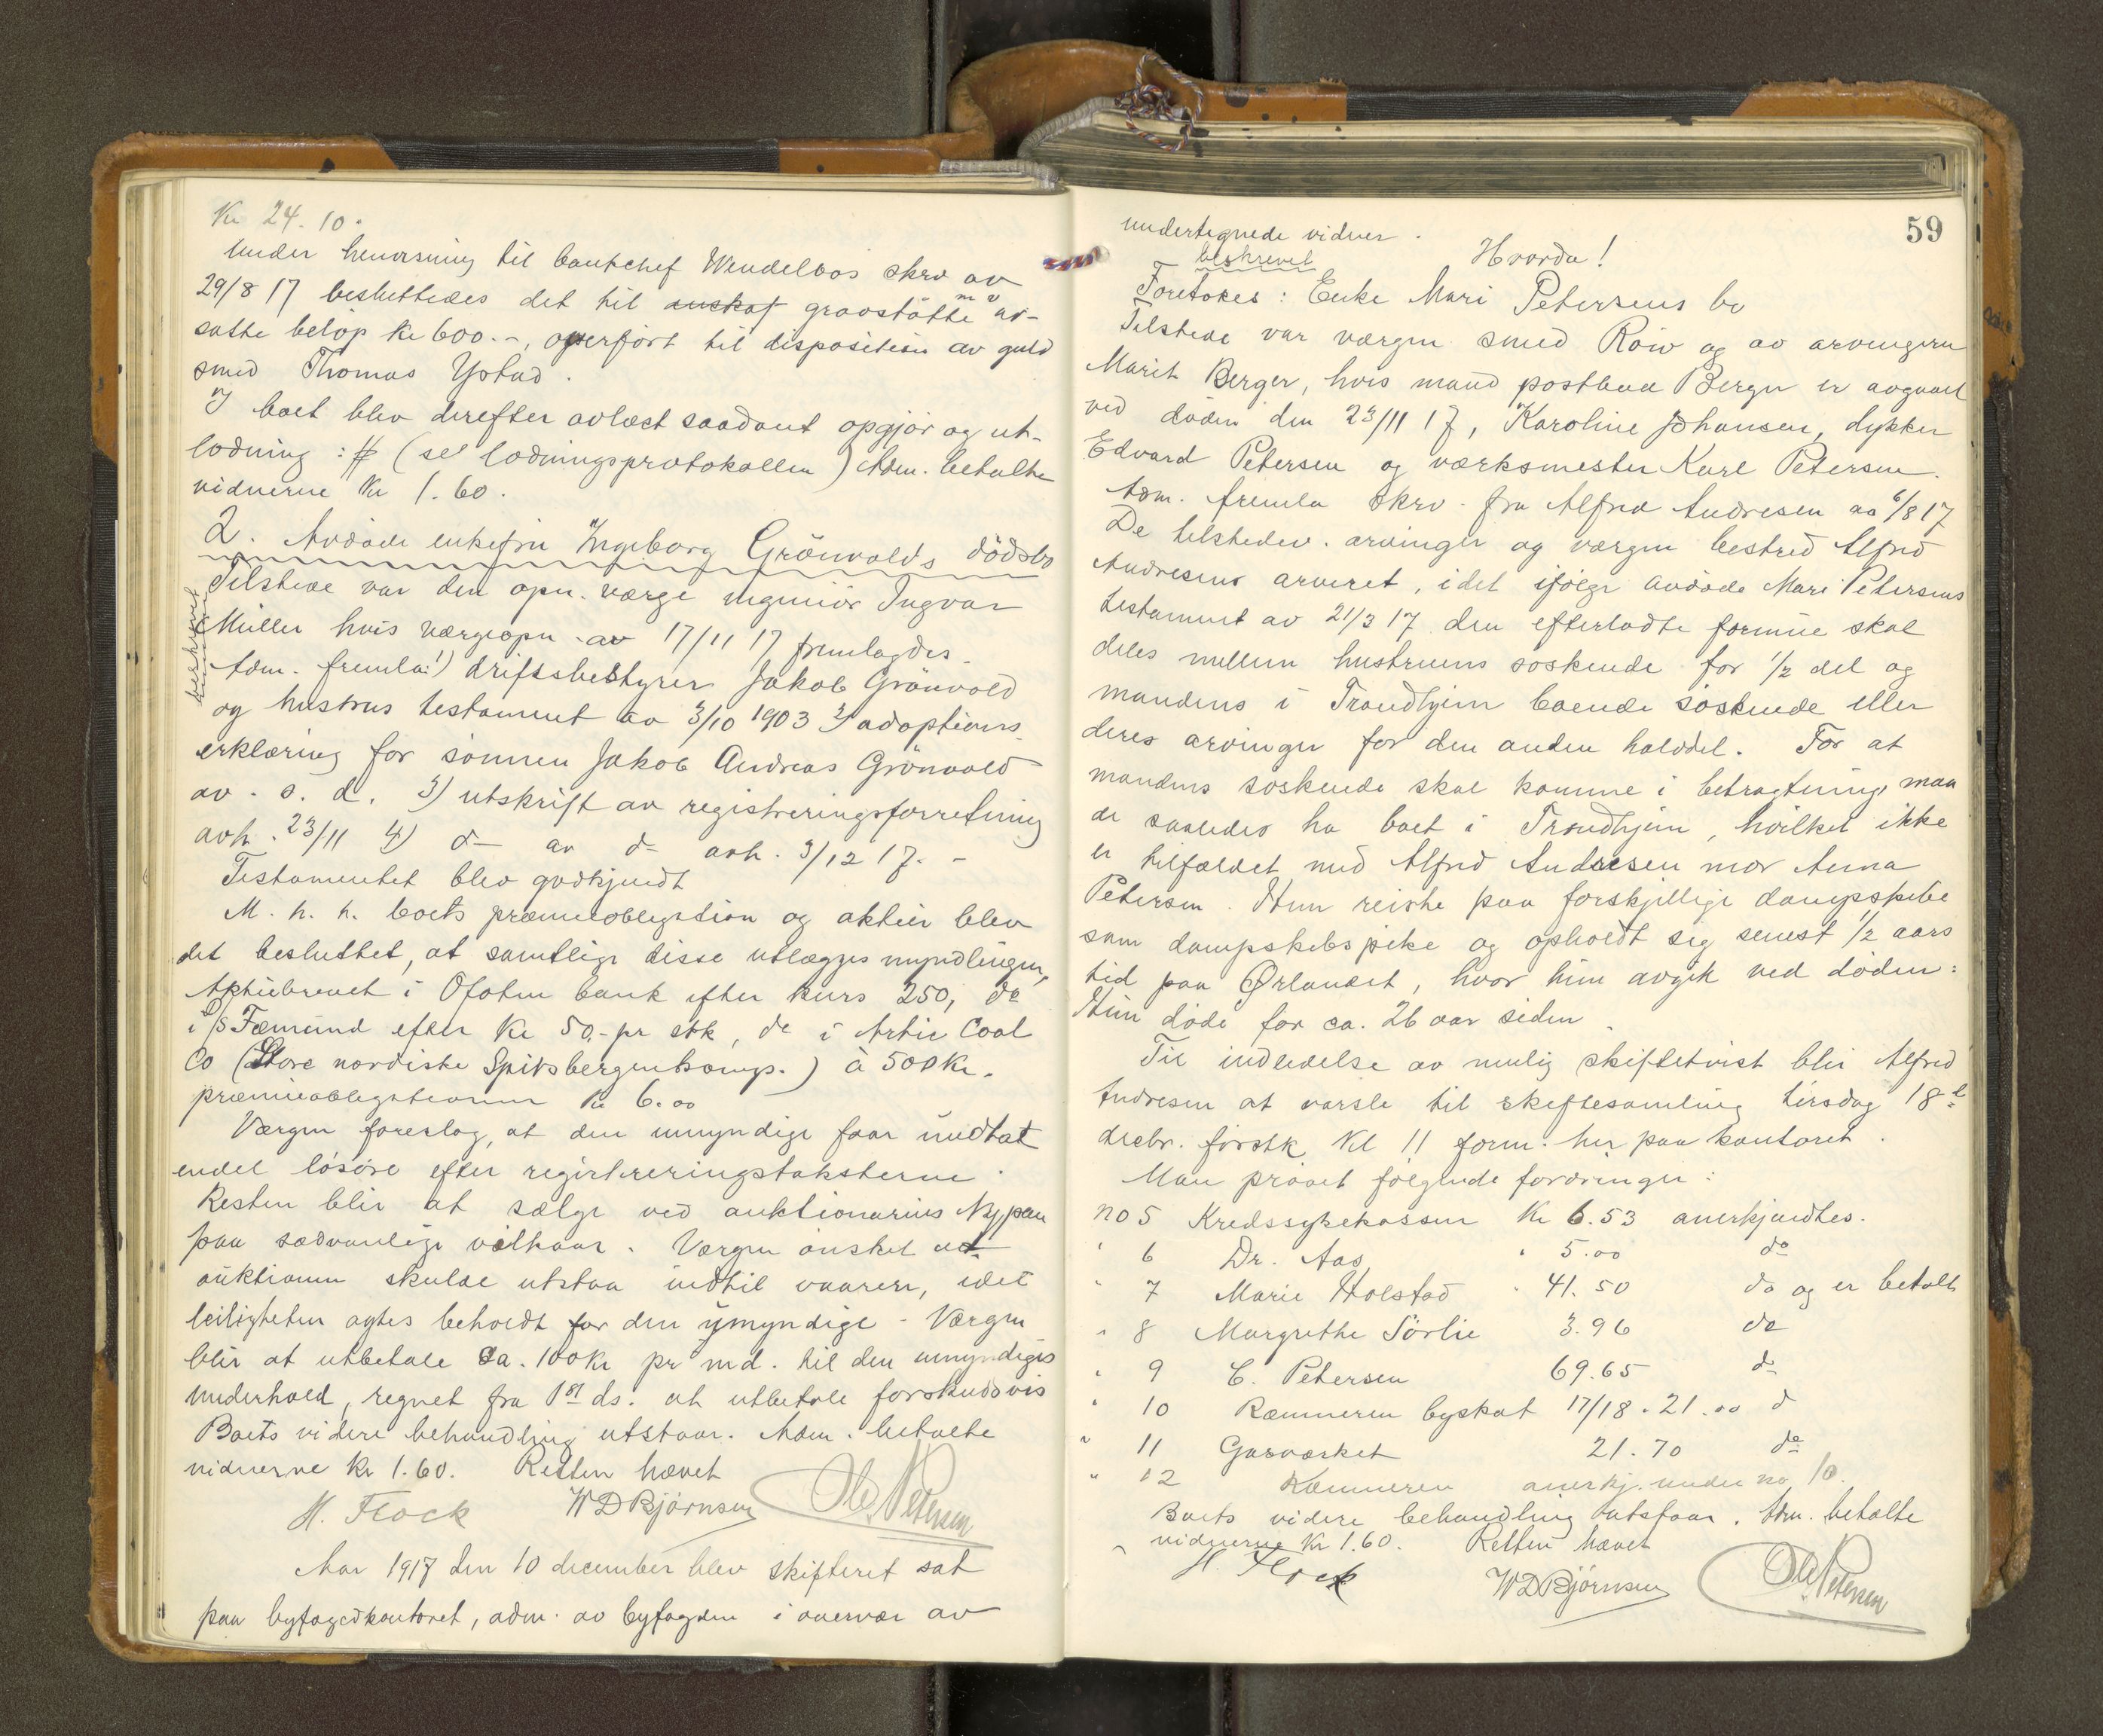 Kr 24.10.
Under henvisning til bankchef Wendelbos skrv av
29/8 17 besluttedes det til anskaf gravstötte m v av-
satte belöp kr 600.-, overfört til disposition av guld
smed Thomas Ystad.
I boet blev derefter avlæst saadant opgjör og ut-
lodning: # (se lodningsprotokollen) Adm. betalte
vidnerne kr 1.60.
2. Avdöde enkefru Ingeborg Grönvolds dödsbo
beskrevet
Tilstede var den opn. værge ingeniör Ingvar
Müller hvis værgeopn. av 17/11 17 fremlagdes.
Adm. fremla: 1) driftsbestyrer Jakob Grönvold
og hustrus testament av 3/10 1903 2) adoptions-
erklæring for sönnen Jakob Andreas Grönvold
av s. d. 3) utskrift av registreringsforretning
avh. 23/11 4) do av do avh. 3/12 17.-
Testamentet blev godkjendt
M. h. h. boets præmieobligation og aktier blev
det besluttet, at samtlige disse utlægges myndlingen,
Aktiebrevet i Ofoten bank efter kurs 250, do
i A/S Fæmund efter Kr 50.- pr stk, do i Artic Coal
Co (Store nordiske Spitsbergenkomp.) à 500 kr.
præmieobligationen kr 6.00
Værgen foreslog, at den umyndige faar undtat
endel lösöre efter registreringstaksterne.
Resten blir at sælge ved auktionarius Nypan
paa sædvanlige vilkaar. Værgen önsket at
auktionen skulde utstaa indtil vaaren, idet
leiligheten agtes beholdt for den umyndige - Værgen
blir at utbetale ca. 100 kr pr md. til den umyndiges
underhold, regnet fra 1st ds. at utbetale forskudsvis
Boets videre behandling utstaar. Adm. betalte
vidnerne kr 1.60. Retten hævet
H. Flock WDBjörnsen Ole Petersen
Aar 1917 den 10 december blev skifteret sat
paa byfogedkontoret, adm. av byfogden i overvær av
59
undertegnede vidner.
Hvorda!
beskrevet
Foretokes: Enke Mari Petersens bo
Tilstede var værgen smed Röiv og av arvingern
Marit Berger, hvis mand postbud Berger er avgaaet
ved döden den 23/11 17, Karoline Johansen, dykker
Edvard Petersen og værksmester Karl Petersen.
Adm. fremla skrv. fra Alfred Andresen av 6/8 17
De tilstedev. arvinger og værgen bestred Alfred
Andresens arveret, idet ifölge avdöde Mari Petersens
testament av 21/3 17 den efterladte formue skal
deles mellem hustruens söskende for 1/2 del og
mandens i Trondhjem boende söskende eller
deres arvinger for den anden halvdel. For at
mandens söskende skal komme i betragtning, maa
de saaledes ha boet i Trondhjem, hvilket ikke
er tilfældet med Alfred Andresen mor Anna
Petersen. Hun reiste paa forskjellige dampskibe
som dampskibspike og opholdt sig senest 1/2 aars
tid paa Ørlandet, hvor hun avgik ved döden:
Hun döde for ca. 26 aar siden.
Til indledelse av mulig skiftetvist blir Alfred
Andresen at varsle til skiftesamling tirsdag 18de
decbr. förstk. kl 11 form. her paa kontoret.
Man prövet fölgende fordringer:
no 5 Kredssykekassen Kr 6.53 anerkjendtes.
" 6 Dr. Aas " 5.00 do
" 7 Marie Holstad " 41.50 do og er betalt
" 8 Margrethe Sörlie 3.96 do
" 9 C. Petersen 69.65 do
" 10 Kæmneren byskat 17/18 " 21.00 do
" 11 Gasværket 21.70 do
" 12 Kæmneren anerkj. under no 10.
Boets videre behandling utstaar. Adm. betalte
vidnerne Kr 1.60. Retten hævet
H. Flock WDBjörnsen Ole Petersen